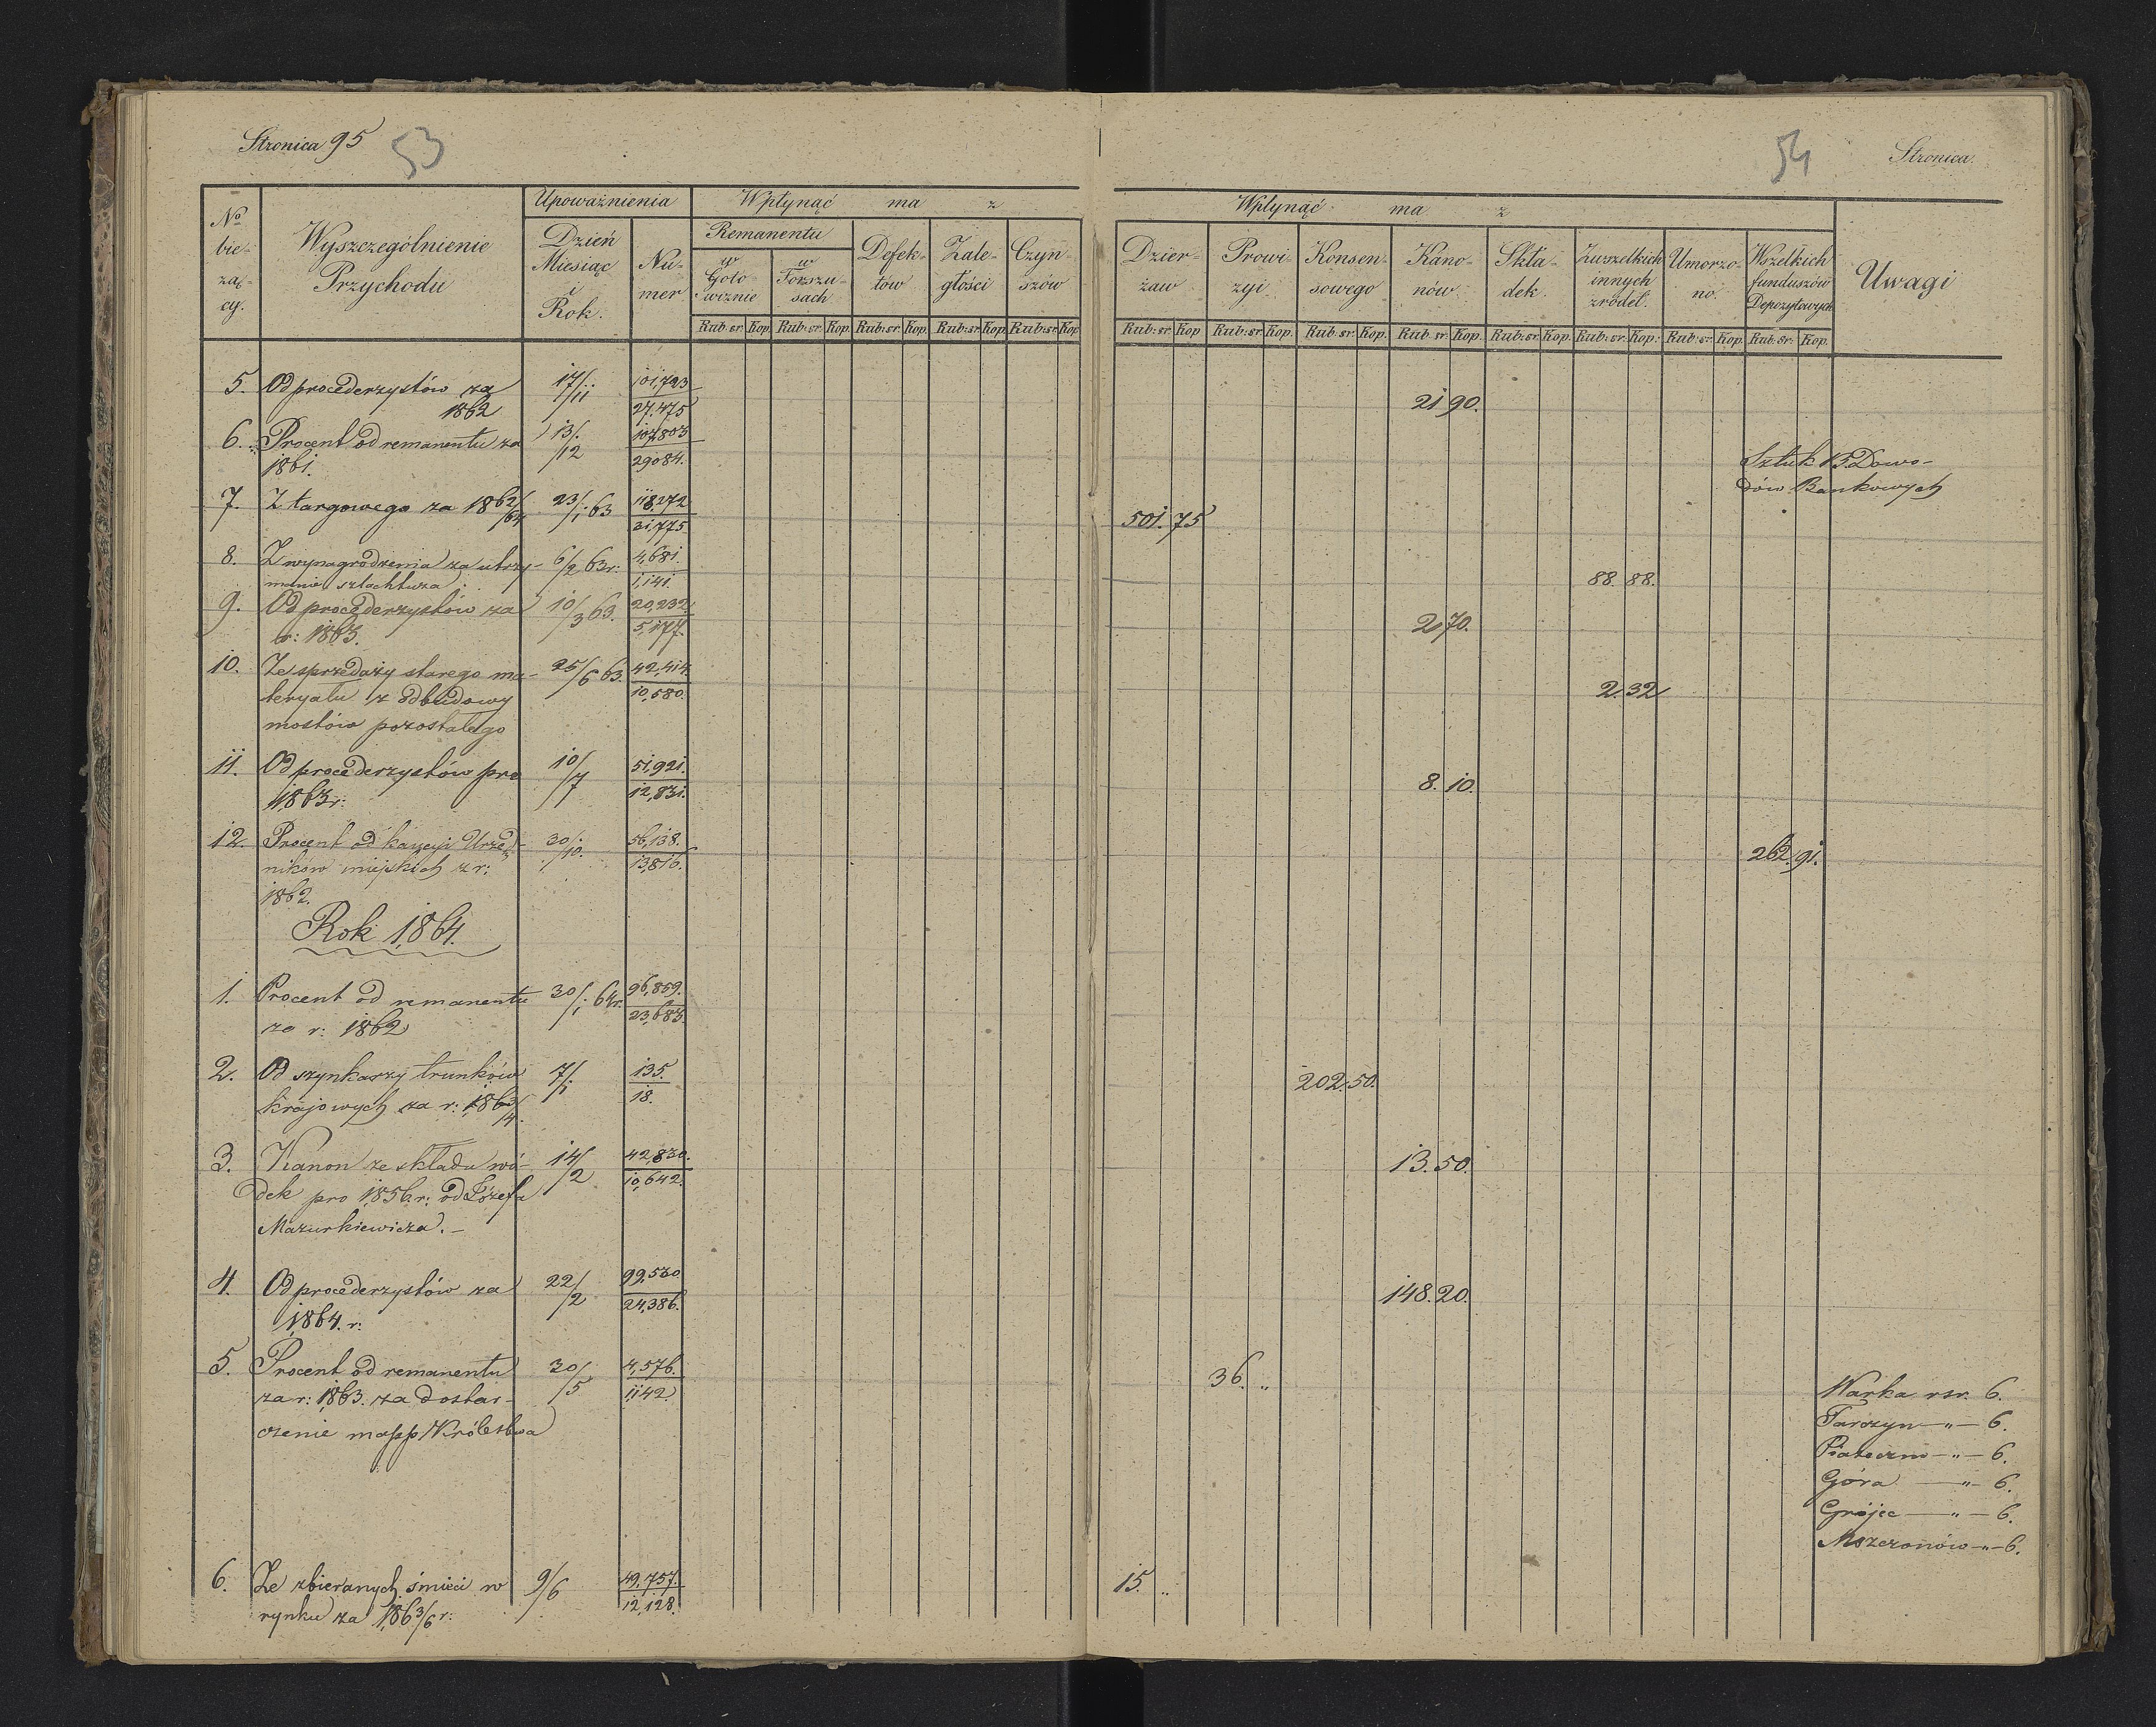 Stronica 95 53
54 Stronica.
No bieżący.
Wyszczególnienie Przychodu
Upoważnienia
Dzień Miesiąc i Rok.
Numer
Wpłynąć ma z
Remanentu
w Gotowiznie
w Forszusach
Defektów
Zaległości
Czynszów
Rub: sr. Kop. Rub: sr. Kop. Rub: sr. Kop. Rub: sr. Kop. Rub: sr. Kop
Wpłynąć ma z
Dzierżaw
Prowizyi
Konsensowego
Kanonów
Składek
Zwszelkich innych zródeł.
Umorzono.
Wszelkich funduszów Depozytowych
Uwagi
Rub: sr. Kop Rub: sr. Kop. Rub. sr. Kop. Rub. sr. Kop. Rub: sr. Kop. Rub: sr. Kop. Rub: sr. Kop. Rub. Sr. Kop.
5. Od procederzystów za 17/11 101,723
1862 27.475 21 90.
6. Procent od remanentu za 13/12 107,803
1861. 29084. Sztuk 15 Dowo-
dów Bankowych
7. Z targowego za 1862/64 23/1 63 118,272
31,775 501. 75
8. Z wynagrodzenia za utrzy- 6/2 63 r: 4,681.
manie szlachtuza 1,141. 88. 88.
9. Od procederzystów za 10/3 63. 20,232.
r: 1863. 5,177. 2 70.
10. Ze sprzedaży starego ma- 25/6 63. 42,414.
teryału z odbudowy 10,580. 2. 32
mostów pozostałego
11. Od procederzystów pro 10/7 51,921.
1863 r: 12,831. 8. 10.
12. Procent od kaucyi Urzęd- 30/10. 56,138.
ników miejskich z r: 13,816. 262. 91.
1862.
Rok 1864.
1. Procent od remanentu 30/1 64 r. 96,859.
za r: 1862 23,683.
2. Od szynkarzy trunków 7/1 135.
krajowych za r: 1863/4. 18. 202. 50.
3. Kanon ze składu wó- 14/2 42,830.
dek pro 1856. r: od Józefa 10,642. 13. 50.
Mazurkiewicza. –
4. Od procederzystów za 22/2 99,530
1864. r: 24,386. 148. 20.
5. Procent od remanentu 30/5 4,576.
za r: 1863. za dostar- 1142 36. "
czenie mapp Królestwa
Warka rsr. 6.
Tarczyn — " — 6.
Piaseczno — " — 6.
Góra — " — 6.
Grójec — " — 6.
Mszczonów — " — 6.
6. Ze zbieranych śmieci w 9/6 49,757.
rynku za 1863/6 r: 12,128. 15. "